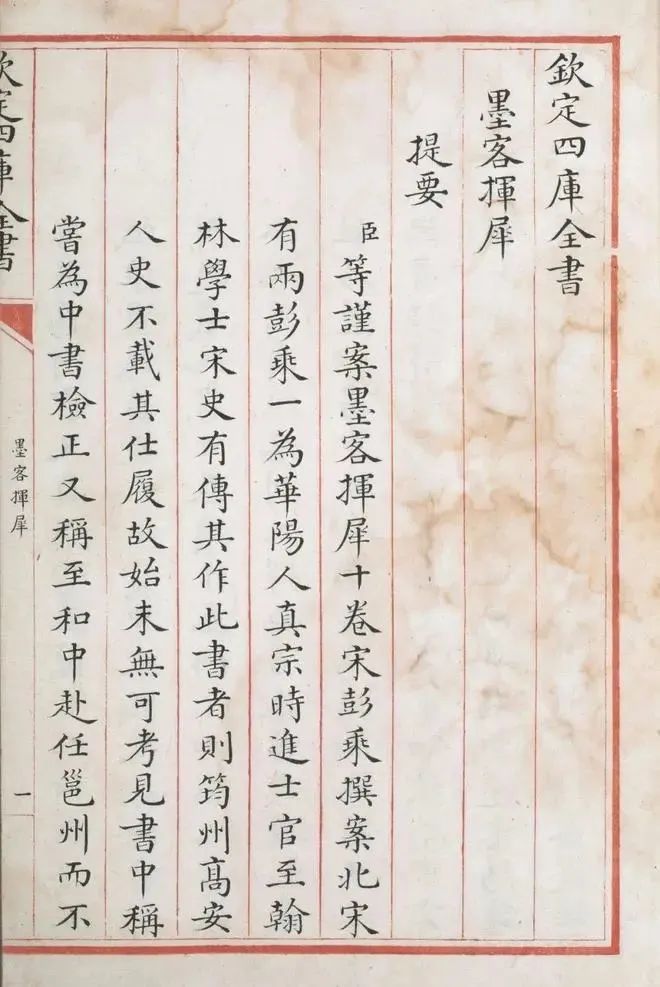 欽定四庫全書
墨客揮犀
提要
臣等謹案墨客揮犀十卷宋彭乘撰案北宋
有兩彭乘一為華陽人真宗時進士官至翰
林學士宋史有傳其作此書者則筠州髙安
人史不載其仕履故始末無可考見書中稱
嘗為中書檢正又稱至和中赴任邕州而不
欽定四庫全書
墨客揮犀
一